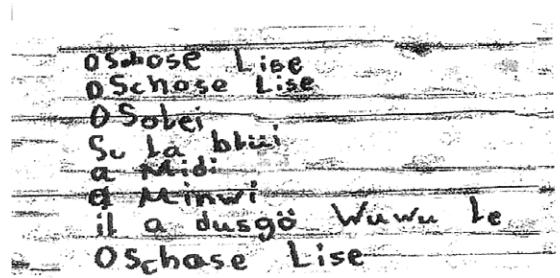 O Schose Lise
O Schose Lise
O Solei
Su la blüi
a Midi
a Minwi
il a dusgö Wuwu le
O Schose Lise